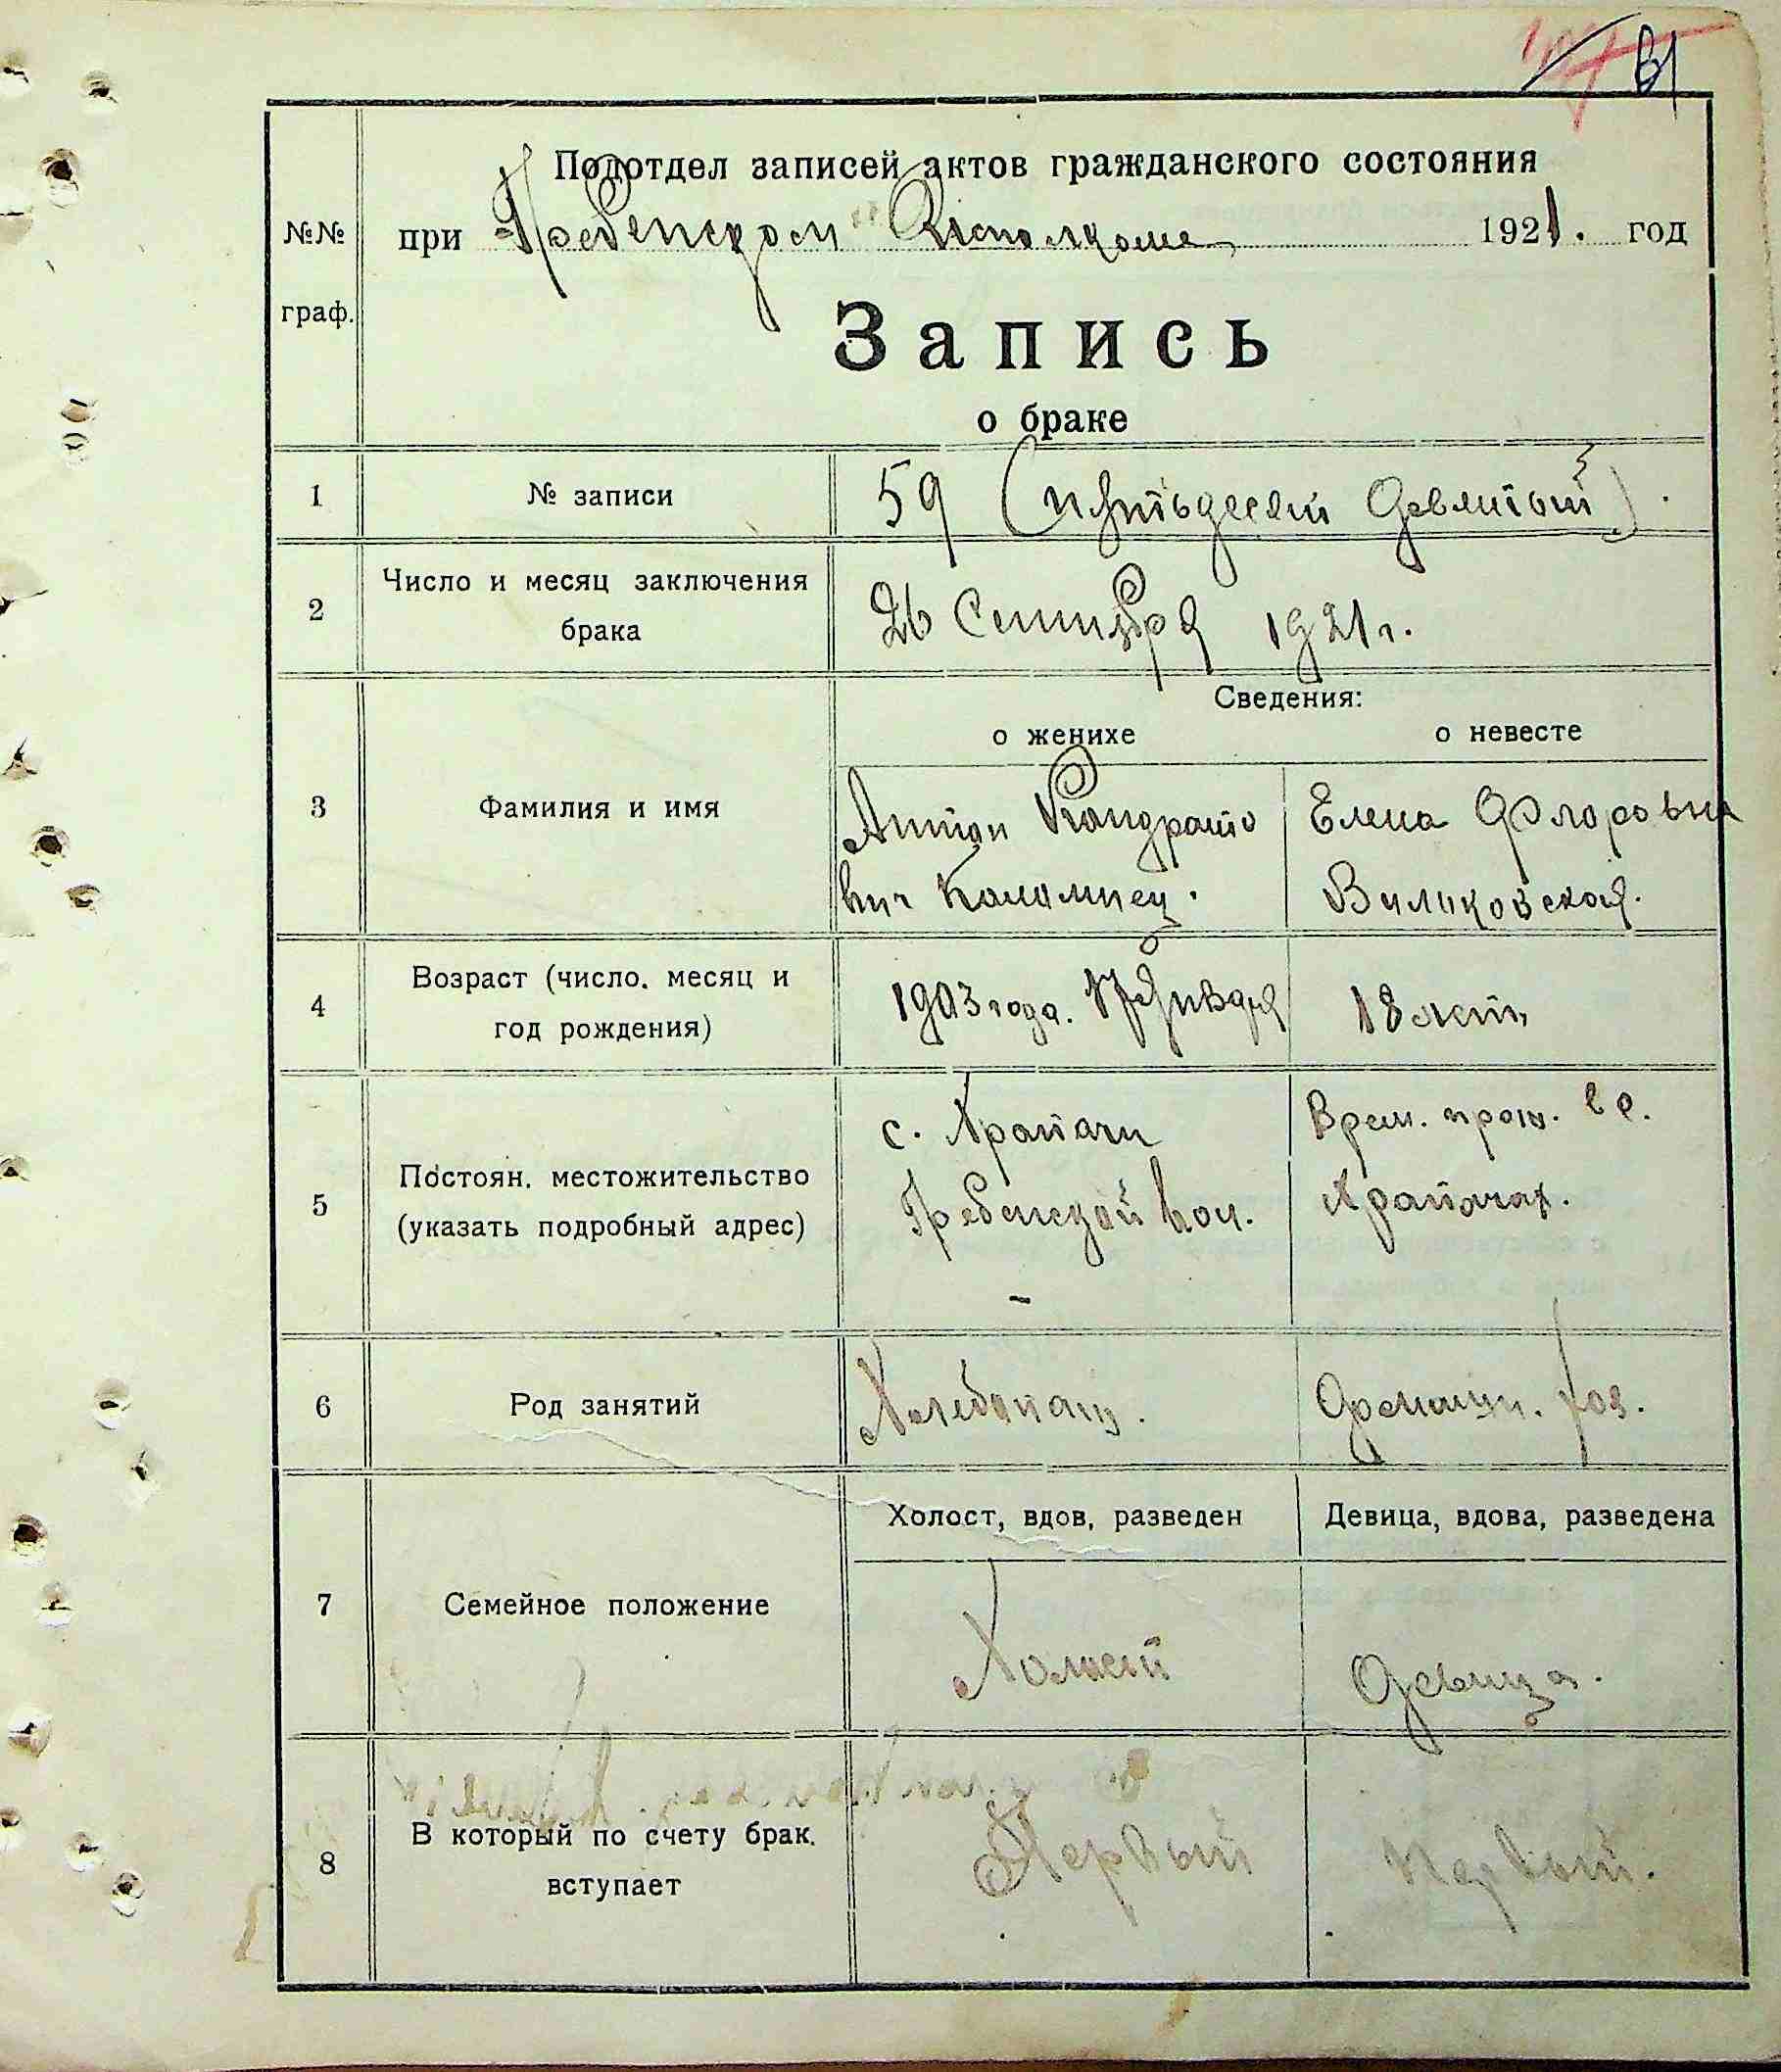 61
Подотдел записей актов гражданского состояния
№№ при Гребенском Исполкоме 1921. год
граф.
Запись
о браке
1 № записи 59 (пятьдесят девятый).
2 Число и месяц заключения брака 26 Сентября 1921 г.
Сведения:
о женихе о невесте
3 Фамилия и имя
Антон Кондрато Елена Флоровна
вич Коломиец.
4 Возраст (число, месяц и год рождения) 1903 года. 17 Января 18 лет
5 Постоян. местожительство
(указать подробный адрес)
с. Храпачи Врем. прож. в с.
Гребенской вол. Храпачах.
6 Род занятий Хлебопаш. Домашн. хоз.
Холост, вдов, разведен Девица, вдова, разведена
7 Семейное положение Холост Девица.
8 В который по счету брак.
вступает
Первый Первый.